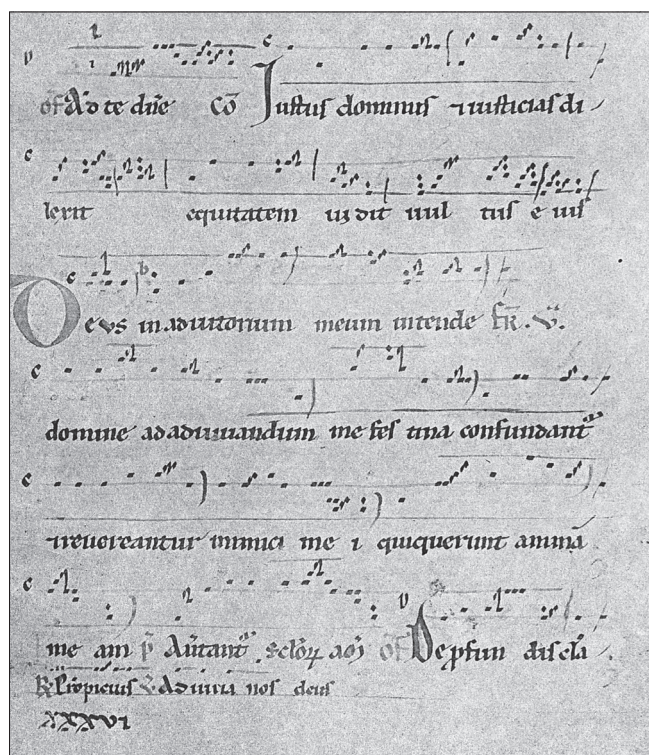 of Ad te dñe Cō Justus dominus ⁊ iusticias di
lexit equitatem uidit uul tus e ius
Deus in adiutorium meum intende
domine ad adiuuandum me fes tina confundant
⁊ reuereantur inimici me i qui querunt animā
me am Auertant of De profun dis cla
Propicius Adiuua nos deus
XXXVI